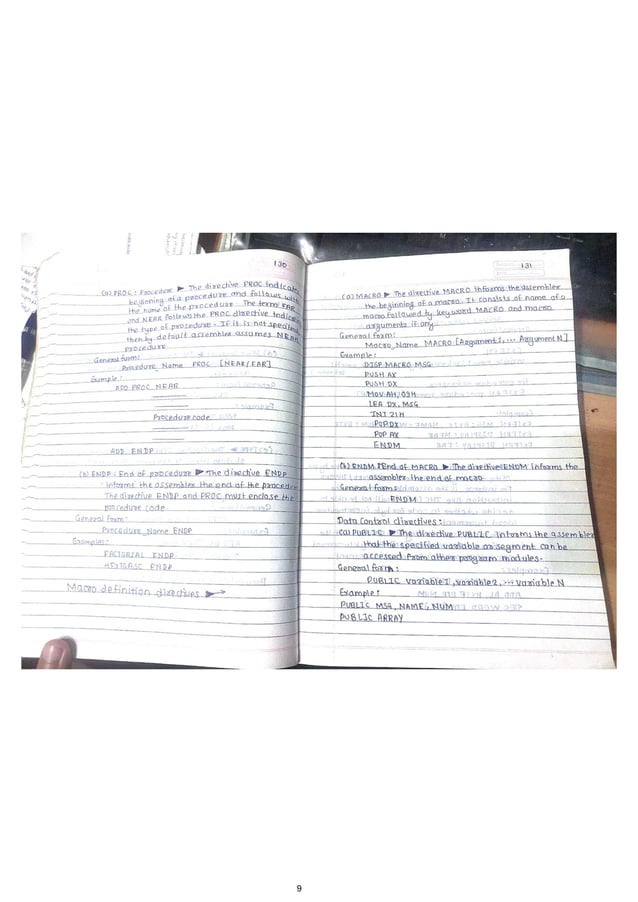 130
(a) PROC : Procedure ► The directive PROC indicates
beginning of a procedure and follows with
the name of the procedure. The term FAR
and NEAR follows the PROC directive indicate
the type of procedure. If it is not specified
then by default assembler assumes NEAR
procedure
General form:
Procedure_Name PROC [NEAR/FAR]
Example:
ADD PROC NEAR
Procedure code
ADD ENDP
(b) ENDP : End of procedure ► The directive ENDP
informs the assembler the end of the procedure
The directive ENDP and PROC must enclose the
procedure code.
General form:
Procedure_Name ENDP
Examples:
FACTORIAL ENDP
ENDP
Macro definition directives
131
(a) MACRO ► The directive MACRO informs the assembler
the beginning of a macro. It consists of name of a
macro followed by keyword MACRO and macro
arguments if any
General form:
Macro_Name MACRO [Argument1,... Argument N]
Example:
DISP MACRO MSG
PUSH AX
PUSH DX
MOV AH, 09H
LEA DX, MSG
INT 21H
POP DX
POP AX
ENDM
(b) ENDM : End of MACRO ► The directive ENDM informs the
assembler the end of macro
General form:
ENDM
Data control directives:
(a) PUBLIC ► The directive PUBLIC informs the assembler
that the specified variable or segment can be
accessed from other program modules.
General form:
PUBLIC variable1, variable2, ... variable N
Example:
PUBLIC MSG, NAME, NUM
PUBLIC ARRAY
9